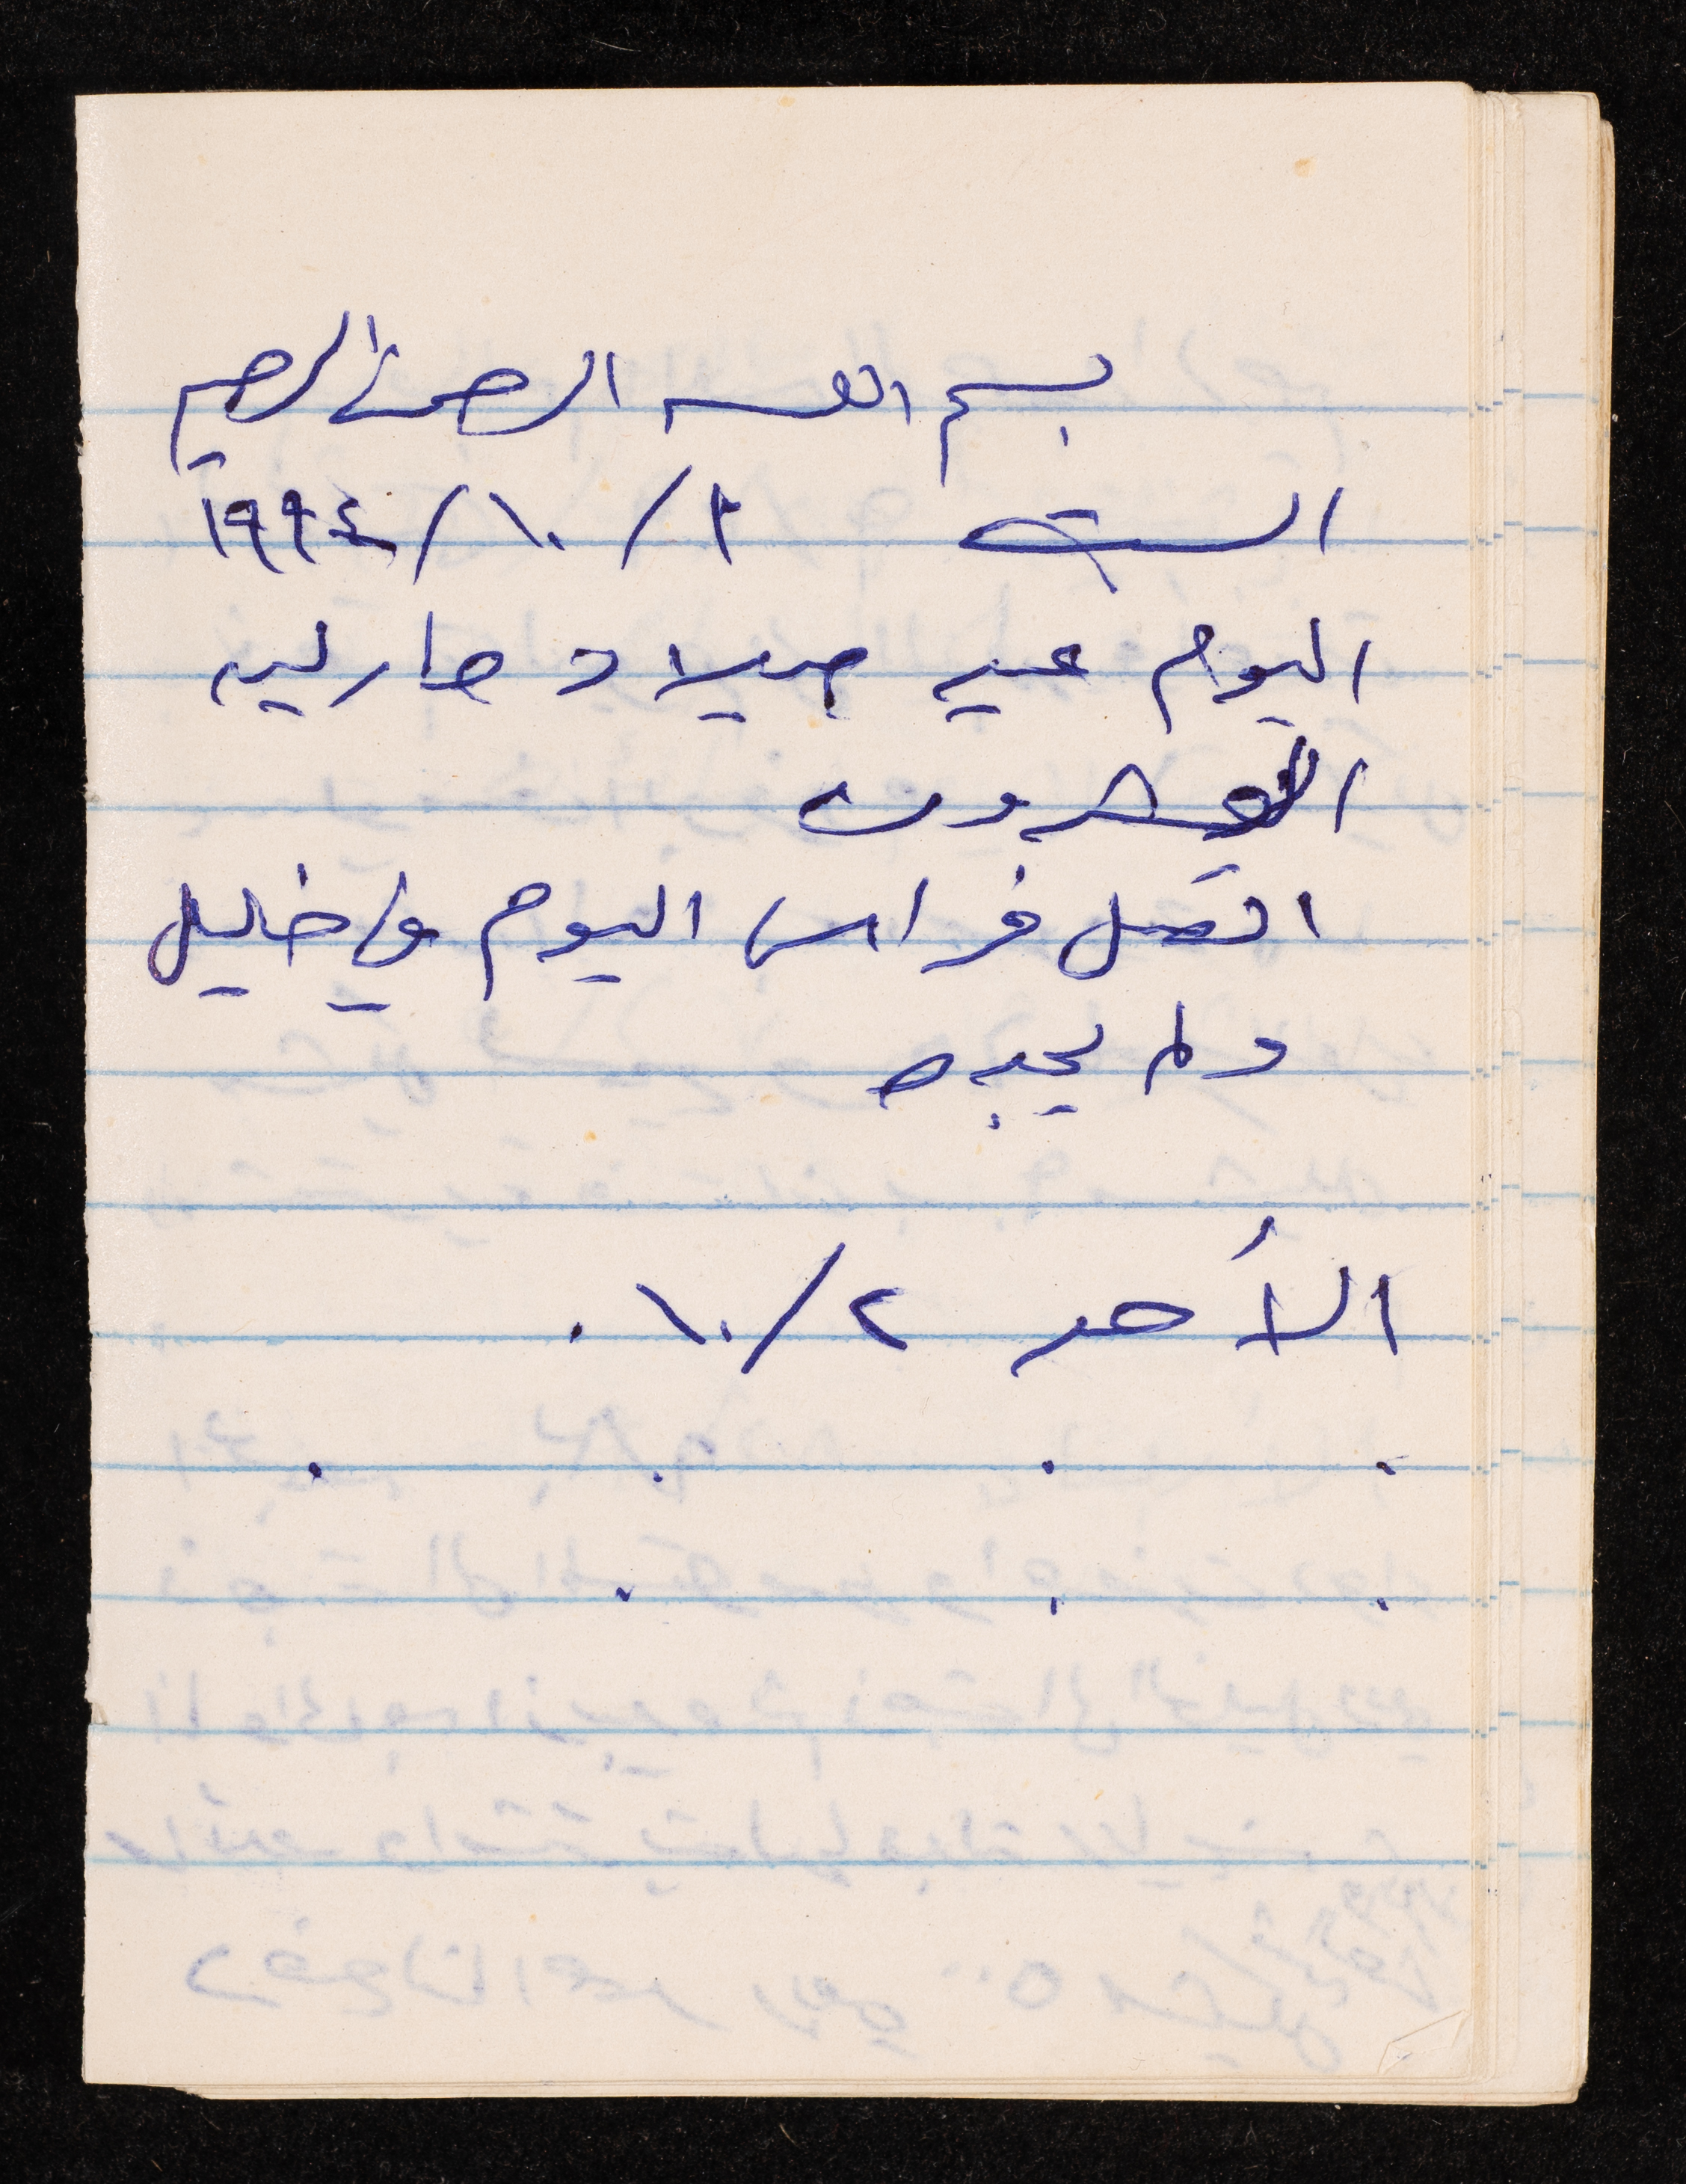 بسم الله الرحمن الرحيم
السبت ١/١٠/١٩٩٤
اليوم عيد ميلاد مارلين
العشرون
اتصل فراس اليوم في خليل
ولم يجبه
الأحد ٢/١٠.
. . . .
. . .